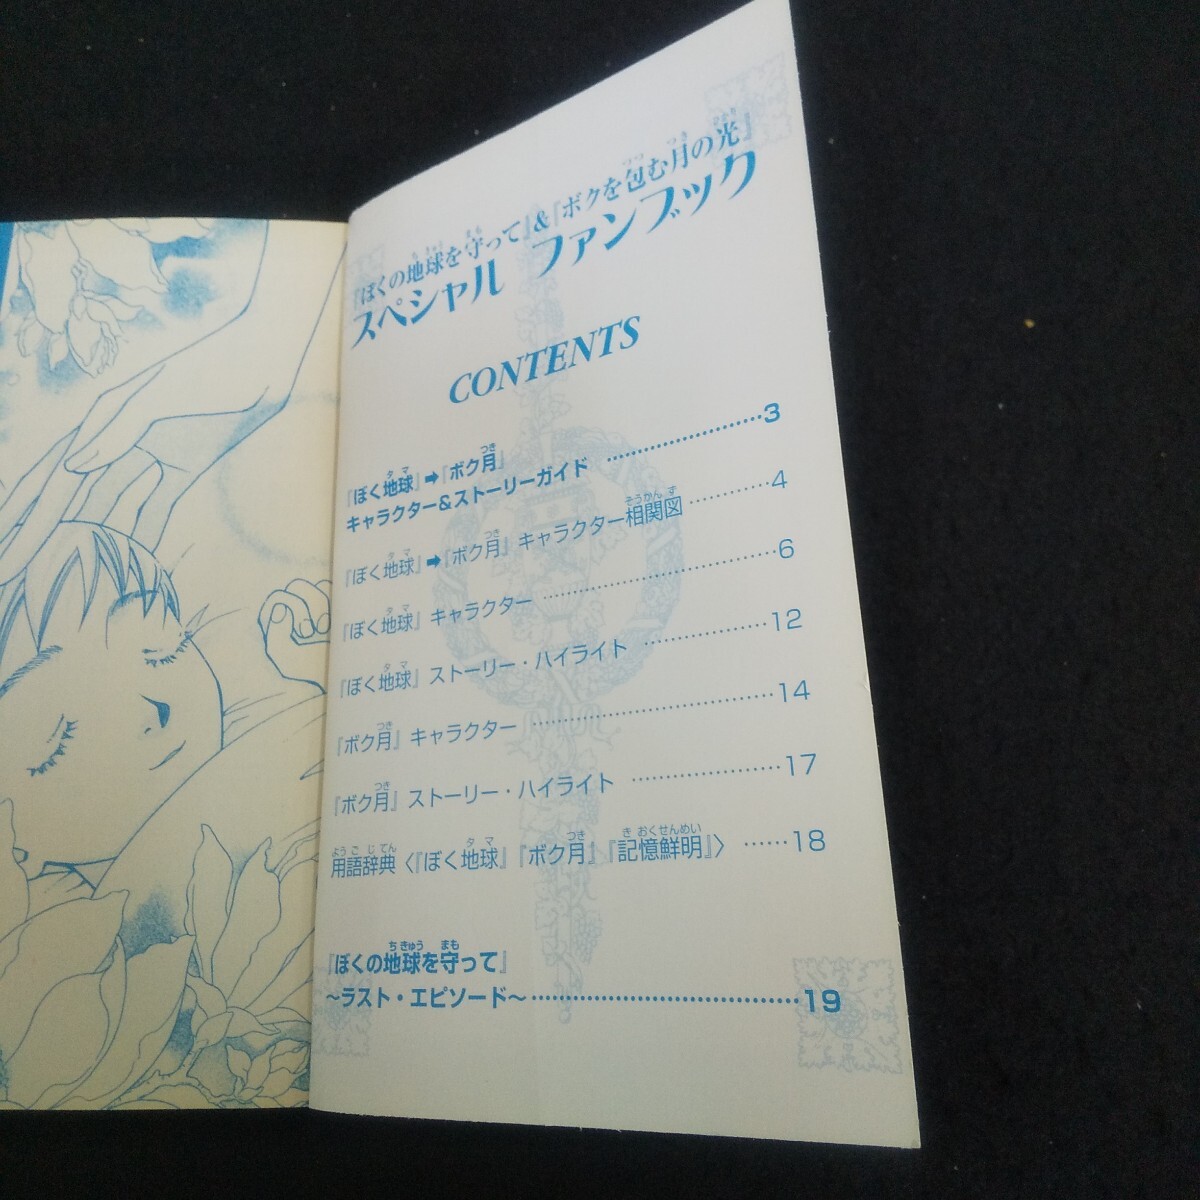 『ぼくの地球を守って』&『ボクを包む月の光』
スペシャル ファンブック
CONTENTS
『ぼく地球』➡『ボク月』
キャラクター&ストーリーガイド ……………………3
『ぼく地球』➡『ボク月』 キャラクター相関図 …………4
『ぼく地球』 キャラクター ……………………6
『ぼく地球』 ストーリー・ハイライト ……………12
『ボク月』 キャラクター ……………………14
『ボク月』 ストーリー・ハイライト ……………17
用語辞典〈『ぼく地球』『ボク月』『記憶鮮明』〉 ……18
『ぼくの地球を守って』
~ラスト・エピソード~ ……………………………19